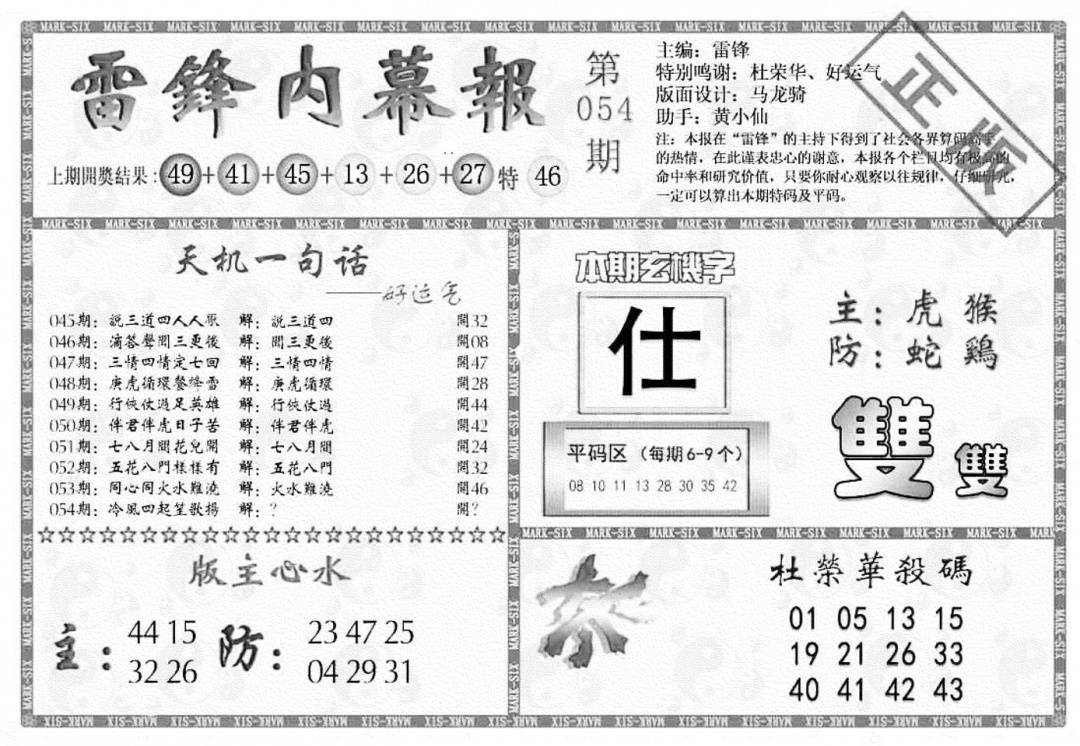 雷鋒内幕報
第054期
主编：雷锋
特别鸣谢：杜荣华、好运气
版面设计：马龙骑
助手：黄小仙
注：本报在“雷锋”的主持下得到了社会各界算码高手
的热情，在此谨表忠心的谢意，本报各个栏目均有极高的
命中率和研究价值，只要你耐心观察以往规律，仔细研究，
一定可以算出本期特码及平码。
正版
上期開獎结果：49+41+45+13+26+27特46
天机一句话
——好运气
045期：説三道四人人厌 解：説三道四 開32
046期：滴答聲間三更後 解：間三更後 開08
047期：三情四情定七回 解：三情四情 開47
048期：庚虎循環餐绛雪 解：庚虎循環 開28
049期：行俠仗過足英雄 解：行俠仗過 開44
050期：伴君伴虎日子苦 解：伴君伴虎 開42
051期：七八月間花兒開 解：七八月間 開24
052期：五花八門樣樣有 解：五花八門 開32
053期：同心同火水難澆 解：火水難澆 開46
054期：冷風四起笙歌揚 解：？ 開？
☆☆☆☆☆☆☆☆☆☆☆☆☆☆☆☆☆☆☆☆☆☆☆
版主心水
主：44 15
32 26
防：23 47 25
04 29 31
本期玄機字
仕
平码区（每期6-9个）
08 10 11 13 28 30 35 42
主：虎 猴
防：蛇 鷄
雙 雙
杀
杜榮華殺碼
01 05 13 15
19 21 26 33
40 41 42 43
MARK-SIX